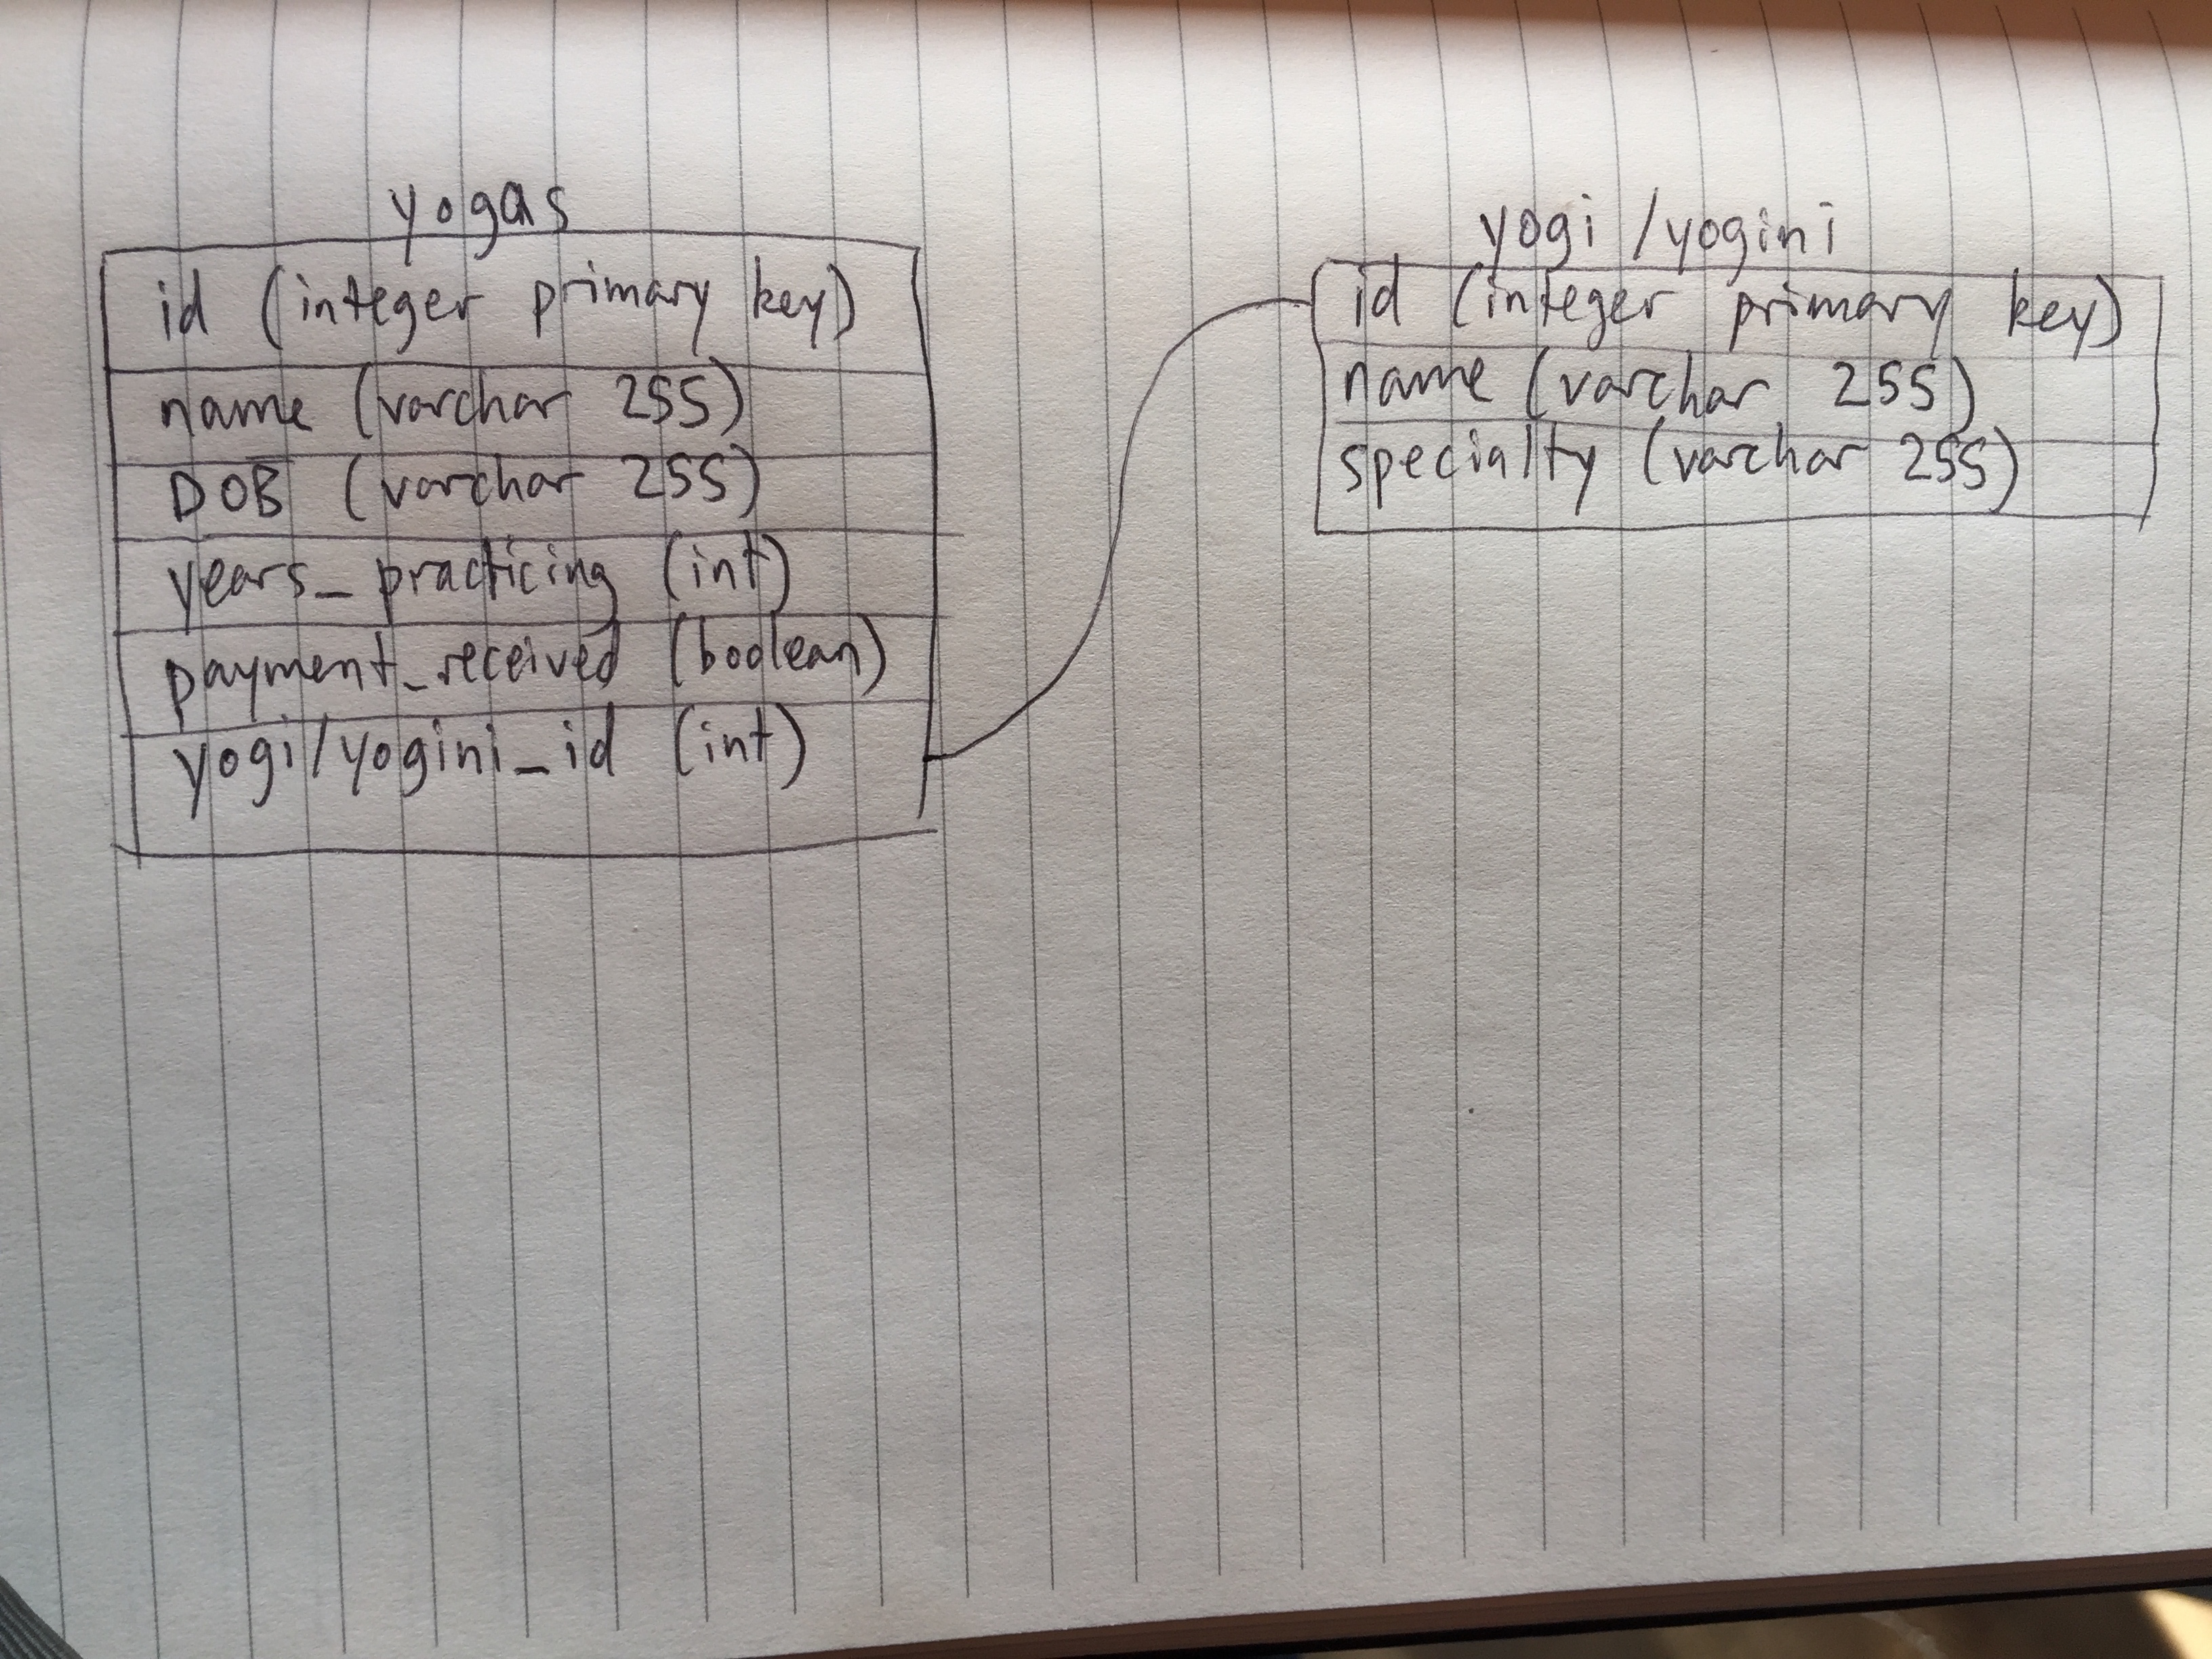 yogas
id (integer primary key)
name (varchar 255)
DOB (varchar 255)
years_practicing (int)
payment_received (boolean)
yogi/yogini_id (int)
yogi/yogini
id (integer primary key)
name (varchar 255)
specialty (varchar 255)